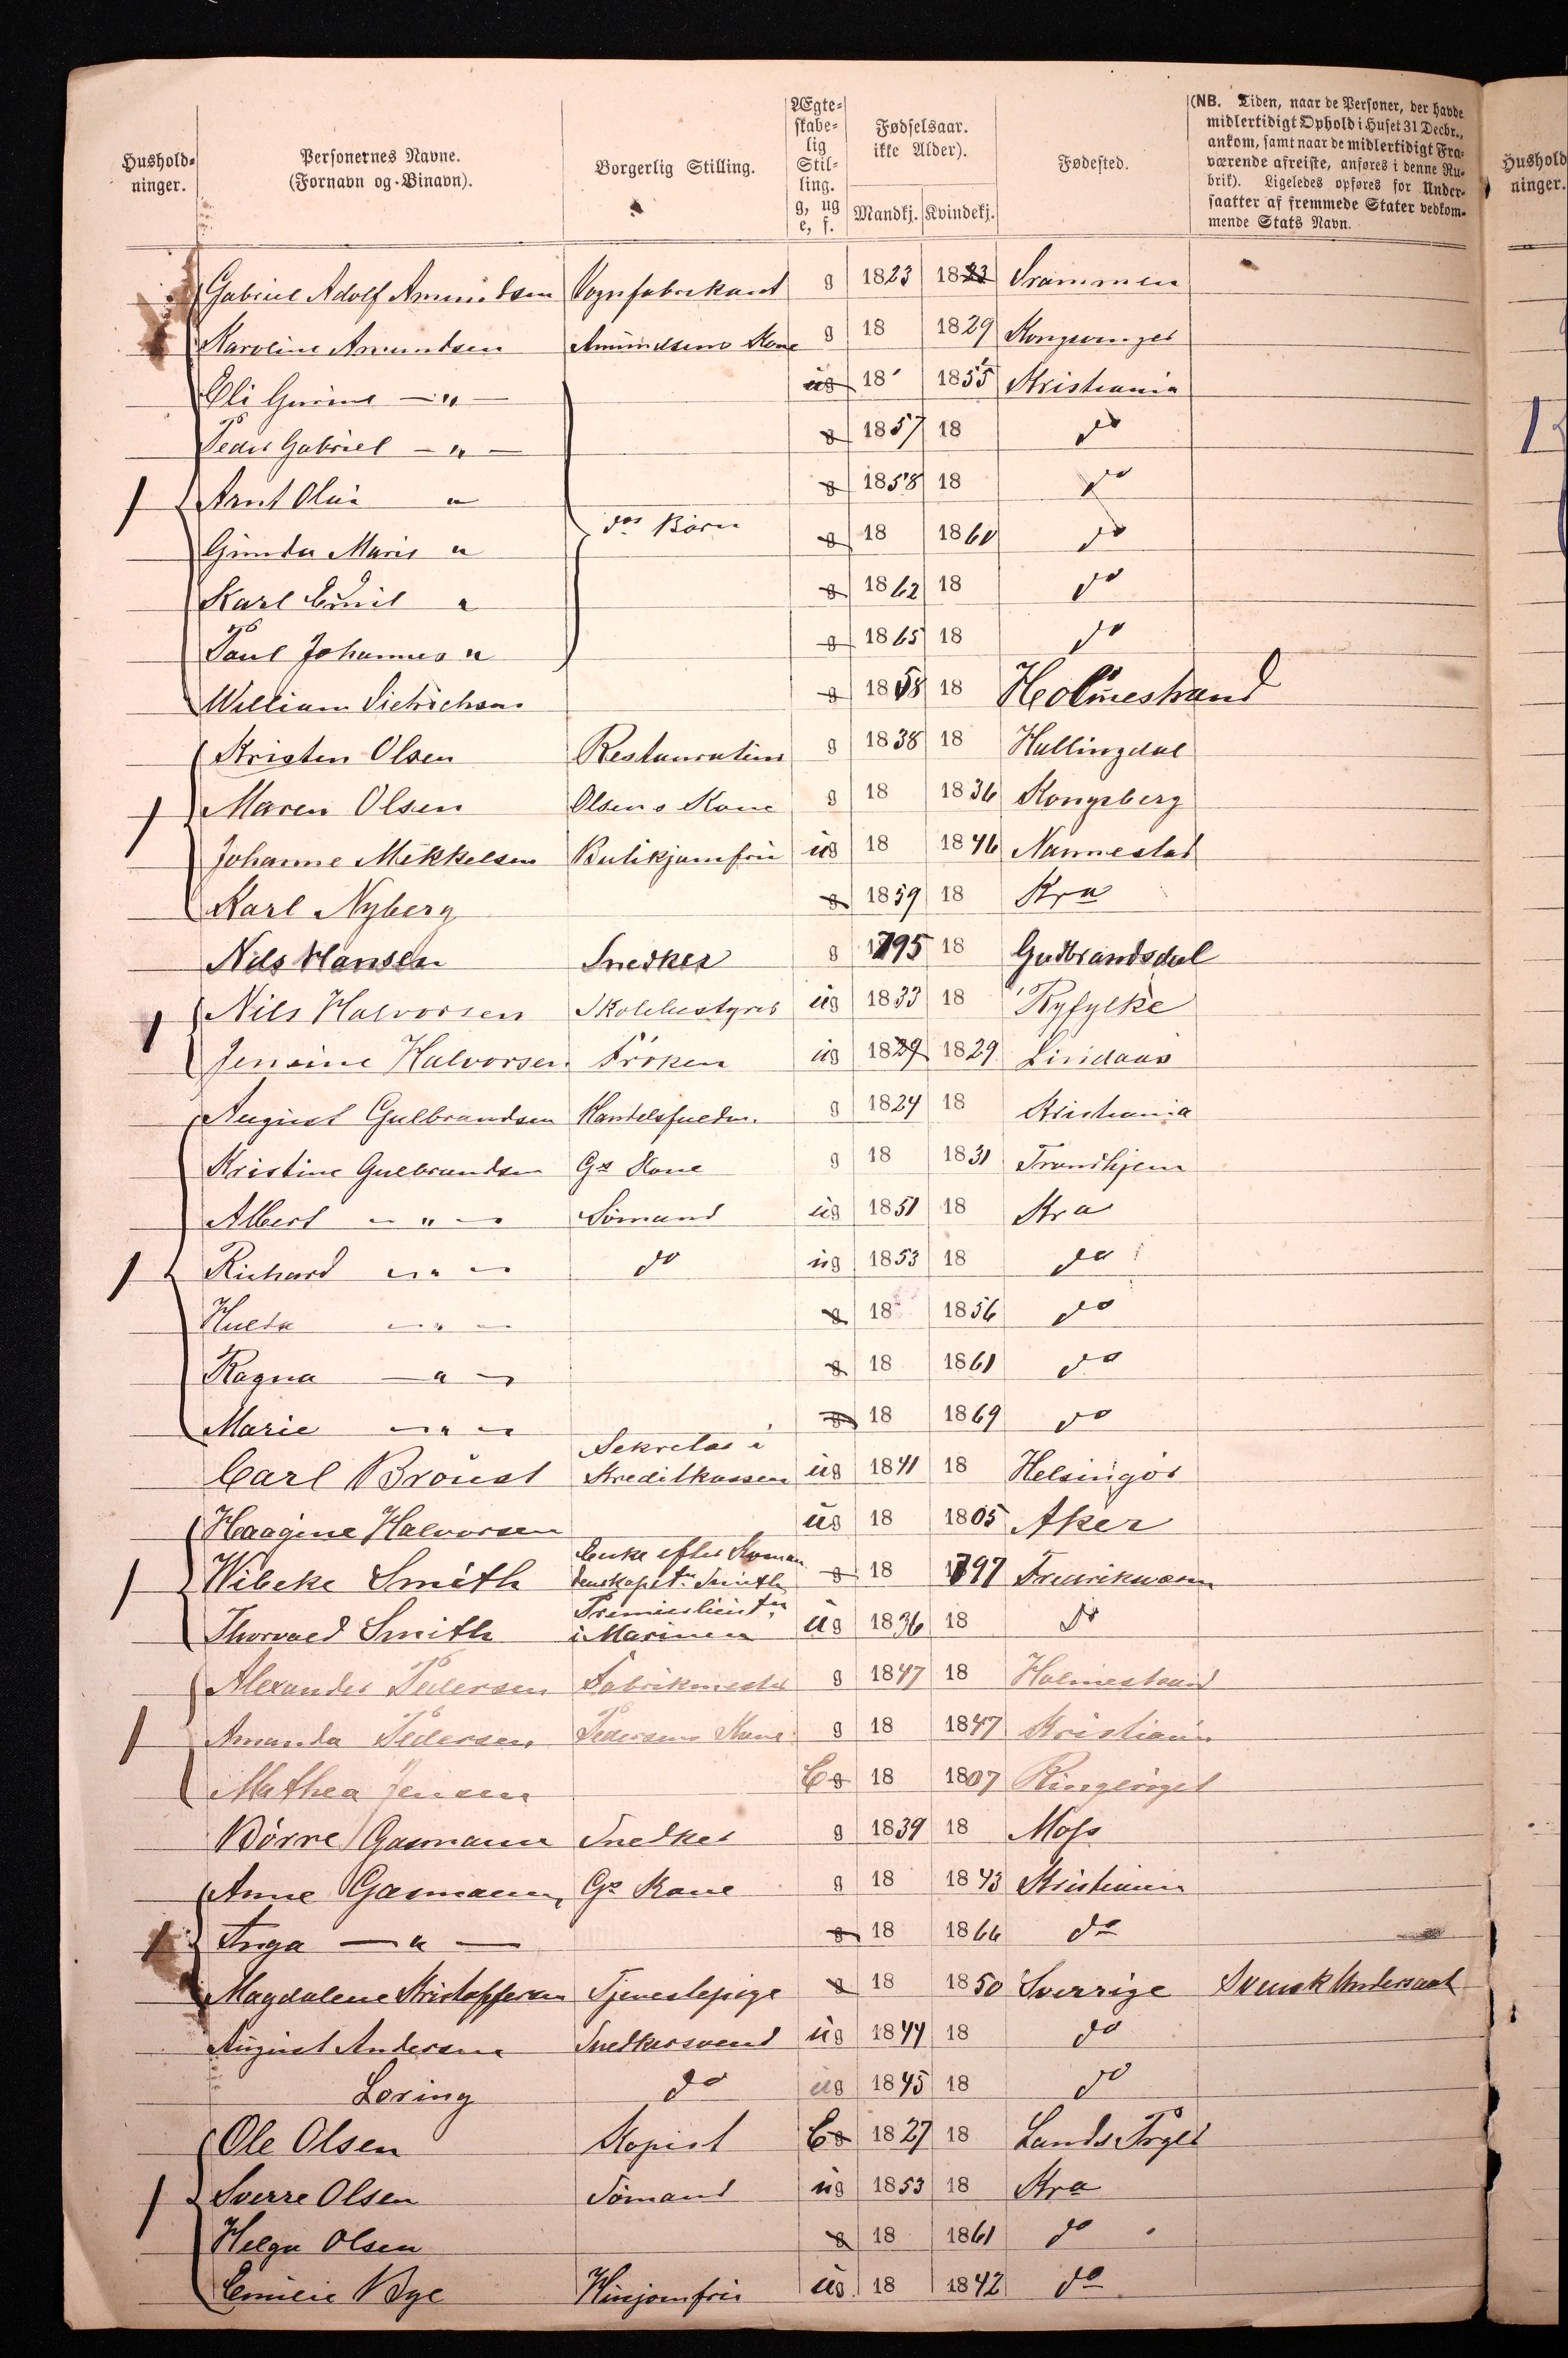 Hushold-
ninger.
Personernes Navne.
(Fornavn og Binavn).
Borgerlig Stilling.
Ægte-
skabe-
lig
Stil-
ling.
g, ug
e, f.
Fødselsaar.
ikke Alder).
Mandkj. Kvindekj.
Fødested.
(NB. Tiden, naar de Personer, der havde
midlertidigt Ophold i Huset 31 Decbr.,
ankom, samt naar de midlertidigt Fra-
værende afreiste, anføres i denne Ru-
brik). Ligeledes opføres for Under-
saatter af fremmede Stater vedkom-
mende Stats Navn.
Hushold
ninger.
Gabriel Adolf Amundsen Vognfabrikant g 1823 1823 Drammen
Karoline Amundsen Amundsens Kone g 18 1829 Kongsvinger
Eli Gurine —"— ug 18 1855 Kristiania
Peder Gabriel —"— g 1857 18 do
1 Arnt Olai " g 1858 18 do
Gunda Marie " ds Børn g 18 1860 do
Karl Emil " g 1862 18 do
Paul Johannes " g 1865 18 do
William Dietrichsen g 1858 18 Holmestrand
Kristen Olsen Restauratiør g 1838 18 Hallingdal
1 Maren Olsen Olsens Kone g 18 1836 Kongsberg
Johanne Mikkelsen Butikjomfru ug 18 1846 Nannestad
Karl Nyberg g 1859 18 Kra
Nils Hansen Snedker g 1795 18 Gudbrandsdal
1 Nils Halvorsen Skolebestyrer ug 1833 18 Ryfylke
Jensine Halvorsen Frøken ug 1829 1829 Lindaas
August Gulbrandsen Handelsfuldm. g 1824 18 Kristiania
Kristine Gulbrandsen Gs Kone g 18 1831 Trondhjem
Albert —"— Sømand ug 1851 18 Kra
1 Richard —"— do ug 1853 18 do
Hulda —"— g 18 1856 do
Ragna —"— g 18 1861 do
Marie —"— g 18 1869 do
Sekretær i
Carl Bröust Kreditkassen ug 1841 18 Helsingør
Haagine Halvorsen ug 18 1805 Aker
Enke efter Koman
1 Wibeke Smith deurkapt. Smith g 18 1797 Fredriksværn
Premierlieutn.
Thorvald Smith i Marinen ug 1836 18 do
Alexander Pedersen Fabrikmester g 1847 18 Holmestrand
1 Amanda Pedersen Pedersens Kone g 18 1847 Kristiania
Mathea Jensen E g 18 1807 Ringeriget
Børre Gasmann Snedker g 1839 18 Moss
Anne Gasmann Gs Kone g 18 1843 Kristiania
1 Inga —"— g 18 1866 do
Magdalene Kristoffersen Tjenestepige g 18 1850 Sverrige Svensk Undersaat
August Andersen Snedkersvend ug 1844 18 do
Loring do ug 1845 18 do
Ole Olsen Kopist E g 1827 18 Lands Prgld
1 Sverre Olsen Sømand ug 1853 18 Kra
Helga Olsen g 18 1861 do
Emilie Bye Husjomfru ug 18 1842 do